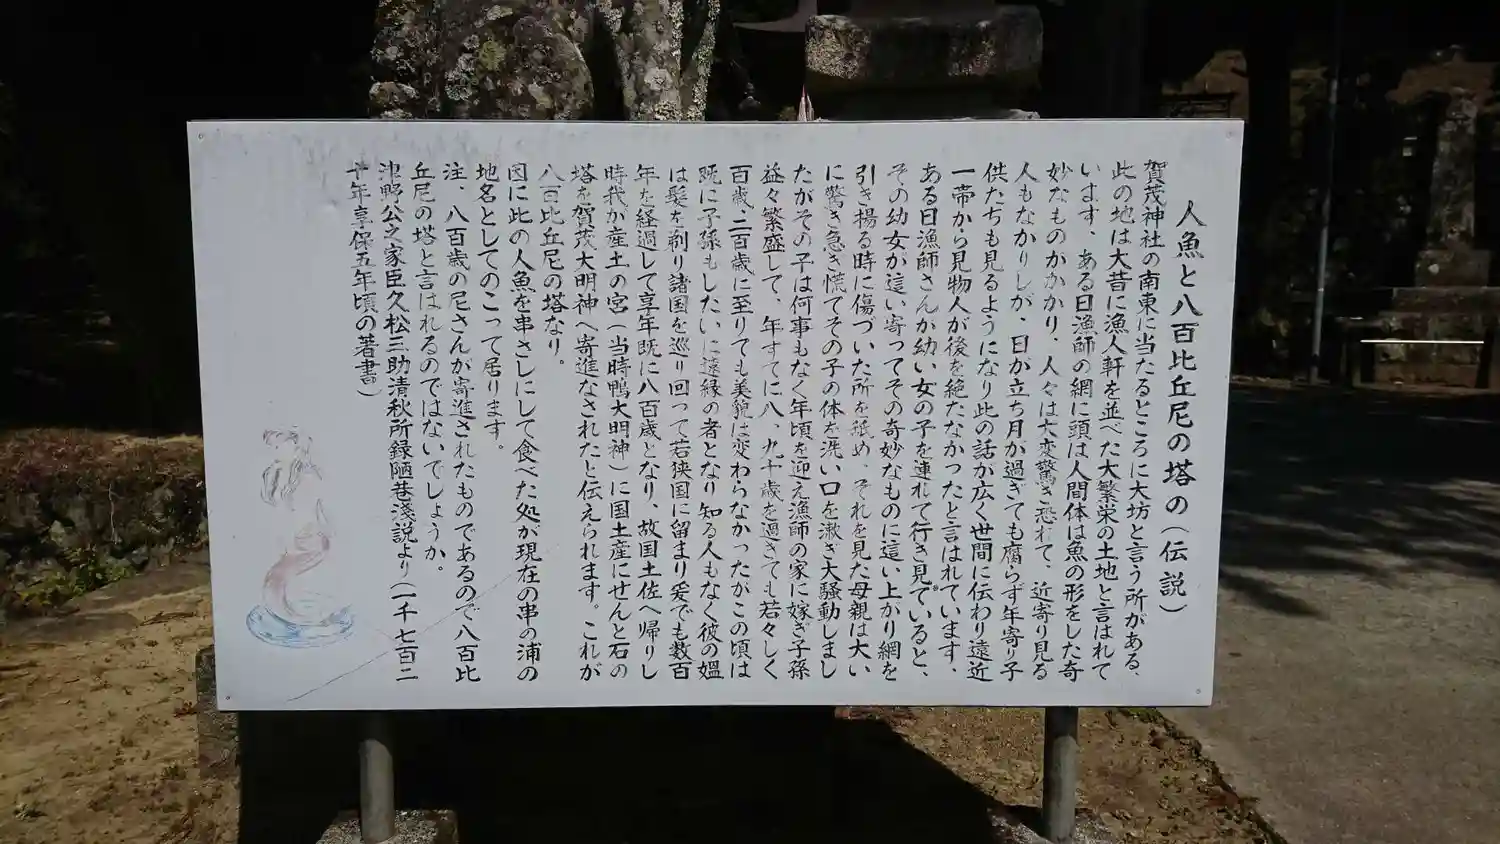 人魚と八百比丘尼の塔の(伝説)
賀茂神社の南東に当たるところに大坊と言う所がある、
此の地は大昔に漁人軒を並べた大繁栄の土地と言はれて
います、ある日漁師の網に頭は人間体は魚の形をした奇
妙なものがかかり、人々は大変驚き恐れて、近寄り見る
人もなかりしが、日が立ち月が過ぎても腐らず年寄り子
供たちも見るようになり此の話が広く世間に伝わり遠近
一帯から見物人が後を絶たなかったと言はれています、
ある日漁師さんが幼い女の子を連れて行き見ていると、
その幼女が這い寄ってその奇妙なものに這い上かり網を
引き揚る時に傷づいた所を舐め、それを見た母親は大い
に驚き急き慌てその子の体を洗い口を漱ぎ大騒動しまし
たがその子は何事もなく年頃を迎え漁師の家に嫁ぎ子孫
益々繁盛して、年すてに八、九十歳を過きても若々しく
百歳、二百歳に至りても美貌は変わらなかったがこの頃は
既に子孫もしたいに遠縁の者となり知る人もなく彼の媼
は髪を剃り諸国を巡り回って若狭国に留まり爰でも数百
年を経過して享年既に八百歳となり、故国土佐へ帰りし
時我か産土の宮(当時鴨大明神)に国土産にせんと石の
塔を賀茂大明神へ寄進なされたと伝えられます。これが
八百比丘尼の塔なり。
図に此の人魚を串さしにして食べた処が現在の串の浦の
地名としてのこって居ります。
注、八百歳の尼さんが寄進されたものであるので八百比
丘尼の塔と言はれるのではないでしょうか。
津野公之家臣久松三助清秋所録陋巷淺説より(一千七百二
十年享保五年頃の著書)